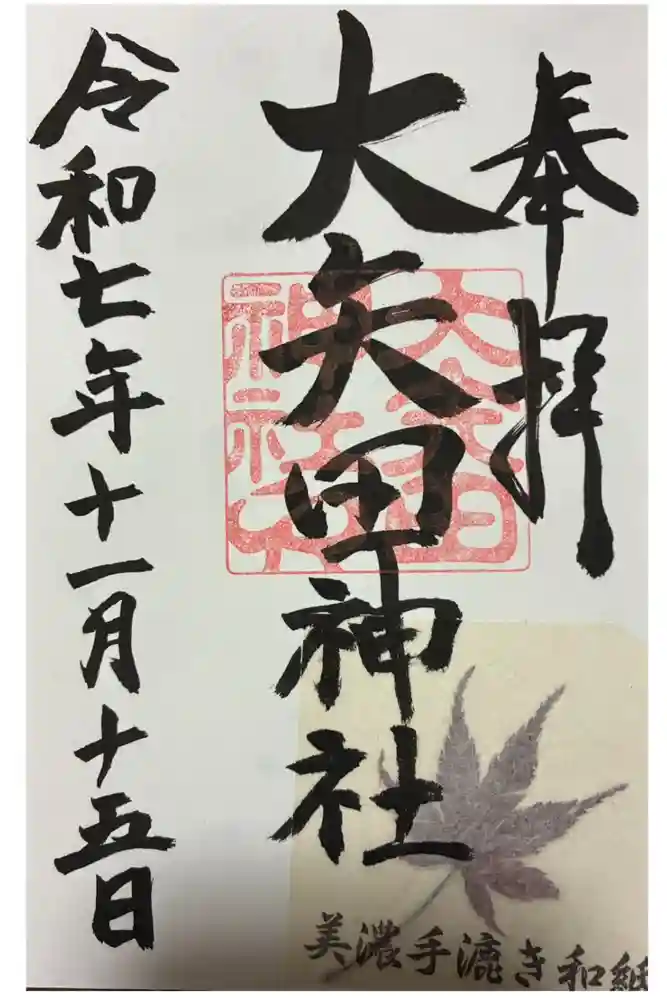 奉拝
大矢田神社
令和七年十一月十五日
美濃手漉き和紙